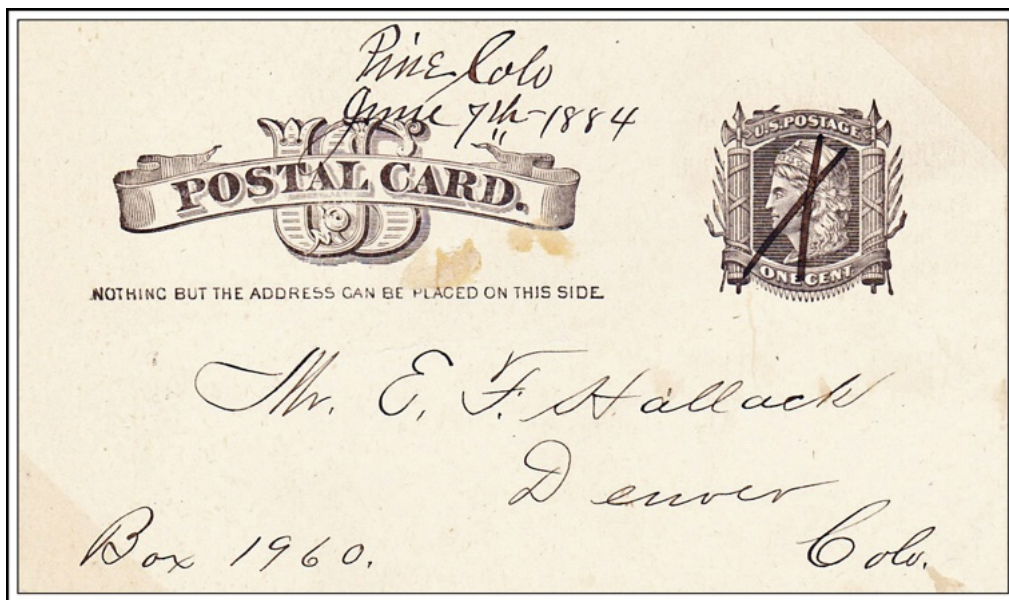 Pine, Colo
June 7th-1884
U.S. POSTAGE
POSTAL CARD.
ONE CENT
NOTHING BUT THE ADDRESS CAN BE PLACED ON THIS SIDE.
Mr. E. F. Hallack
Denver
Box 1960.
Colo.